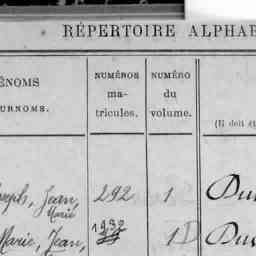 RÉPERTOIRE ALPHAB
ÉNOMS
URNOMS.
NUMÉROS
ma-
tricules.
NUMÉRO
du
volume.
(Il doit êt
seph, Jean,
Marie
292
1
Du
Marie, Jean,
1932
1 D
Du